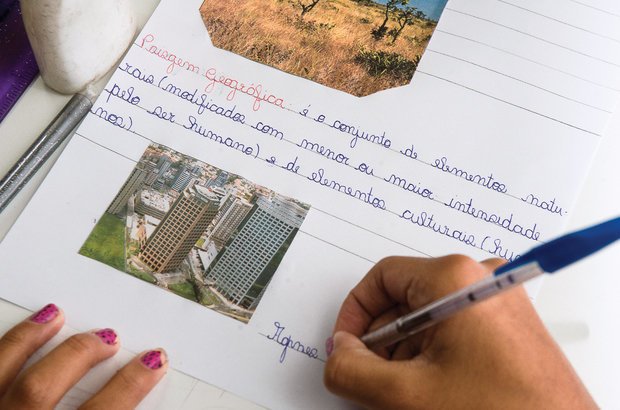 Paisagem Geográfica: é o conjunto de elementos natu-
rais (modificados com menor ou maior intensidade
pelo ser humano) e de elementos culturais
nos).
Agnes